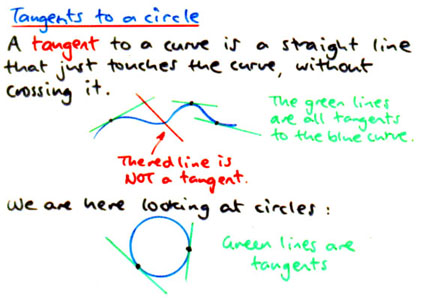 Tangents to a circle
A tangent to a curve is a straight line
that just touches the curve, without
crossing it.
The green lines
are all tangents
to the blue curve.
The red line is
NOT a tangent.
We are here looking at circles :
Green lines are
tangents